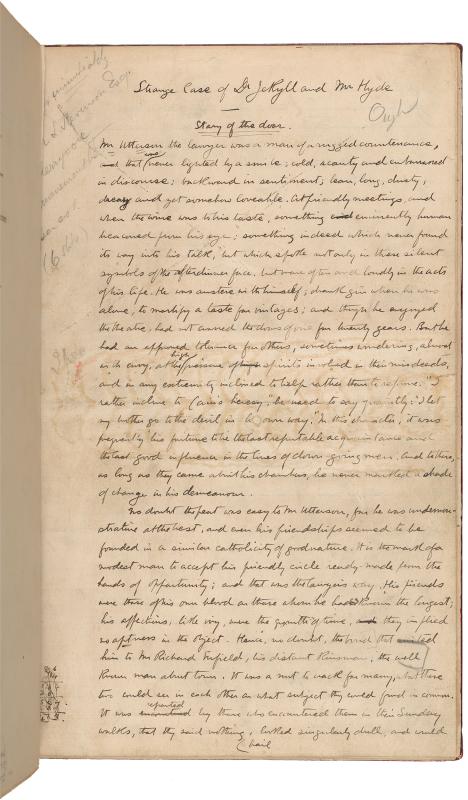 Strange Case of Dr Jekyll and Mr Hyde
Story of the door.
Mr Utterson the lawyer was a man of a rugged countenance,
that was never lighted by a smile; cold, scanty and embarrassed
in discourse; backward in sentiment; lean, long, dusty,
dreary and yet somehow loveable. At friendly meetings, and
when the wine was to his taste, something eminently human
beaconed from his eye; something indeed which never found
its way into his talk, but which spoke not only in these silent
symbols of the after dinner face, but more often and loudly in the acts
of his life. He was austere with himself; drank gin when he was
alone, to mortify a taste for vintages; and though he enjoyed
the theatre, had not crossed the doors of one for twenty years. But he
had an approved tolerance for others, sometimes wondering, almost
with envy, at the high pressure of spirits involved in their misdeeds,
and in any extremity inclined to help rather than to reprove. "I
rather incline to Cain's heresy," he used to say quaintly: "I let
my brother go to the devil in his own way." In this character, it was
frequently his fortune to be the last reputable acquaintance and
the last good influence in the lives of down going men. And to these,
as long as they came about his chambers, he never marked a shade
of change in his demeanour.
No doubt the feat was easy to Mr Utterson, for he was undemon-
strative at the best, and even his friendships seemed to be
founded in a similar catholicity of good nature. It is the mark of a
modest man to accept his friendly circle ready-made from the
hands of opportunity; and that was the lawyer's way. His friends
were those of his own blood or those whom he had known the longest;
his affections, like ivy, were the growth of time, they implied
no aptness in the object. Hence, no doubt, the bond that united
him to Mr Richard Enfield, his distant kinsman, the well
known man about town. It was a nut to crack for many, what these
two could see in each other or what subject they could find in common.
It was reported by those who encountered them in their Sunday
walks, that they said nothing, looked singularly dull, and would
hail